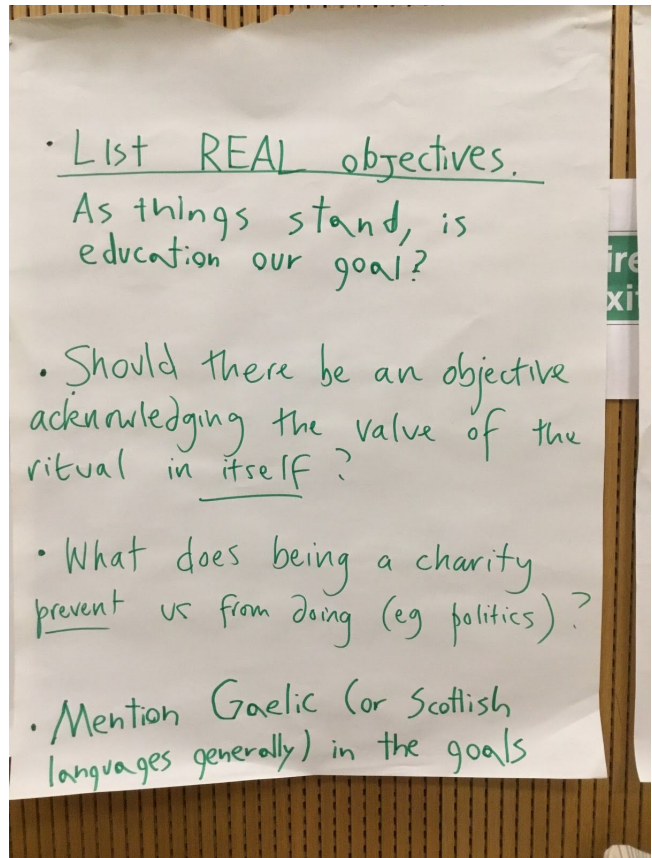 · List REAL objectives.
As things stand, is
education our goal?
· Should there be an objective
acknowledging the value of the
ritual in itself?
· What does being a charity
prevent us from doing (eg politics)?
· Mention Gaelic (or Scottish
languages generally) in the goals
ire
xi